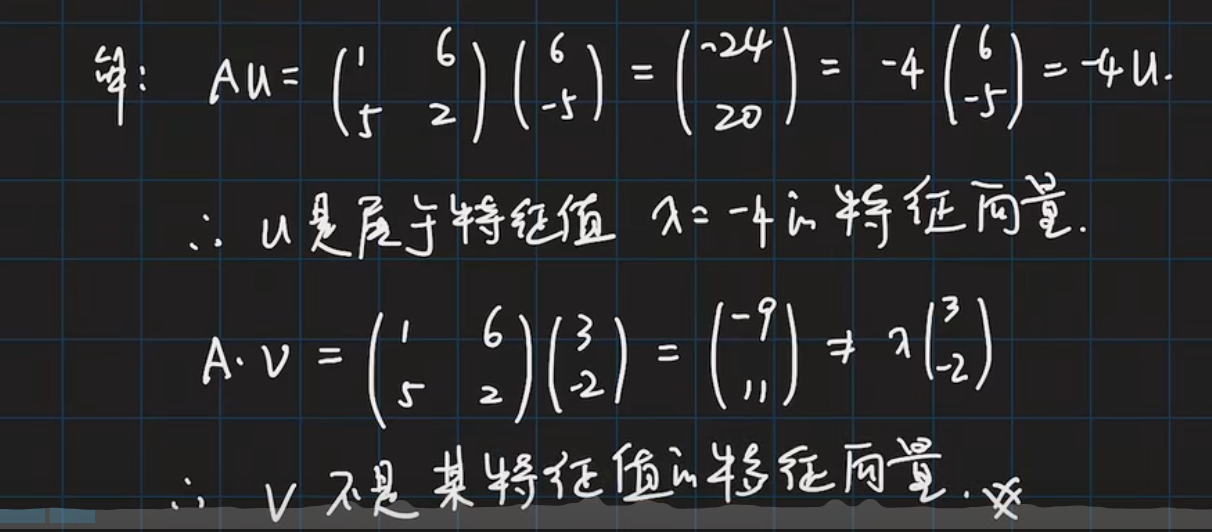 解: Au = (1 6; 5 2)(6; -5) = (-24; 20) = -4(6; -5) = -4u.
∴ u是属于特征值 λ=-4的特征向量.
A·v = (1 6; 5 2)(3; -2) = (-9; 11) ≠ λ(3; -2)
∴ v不是某特征值的特征向量. ※